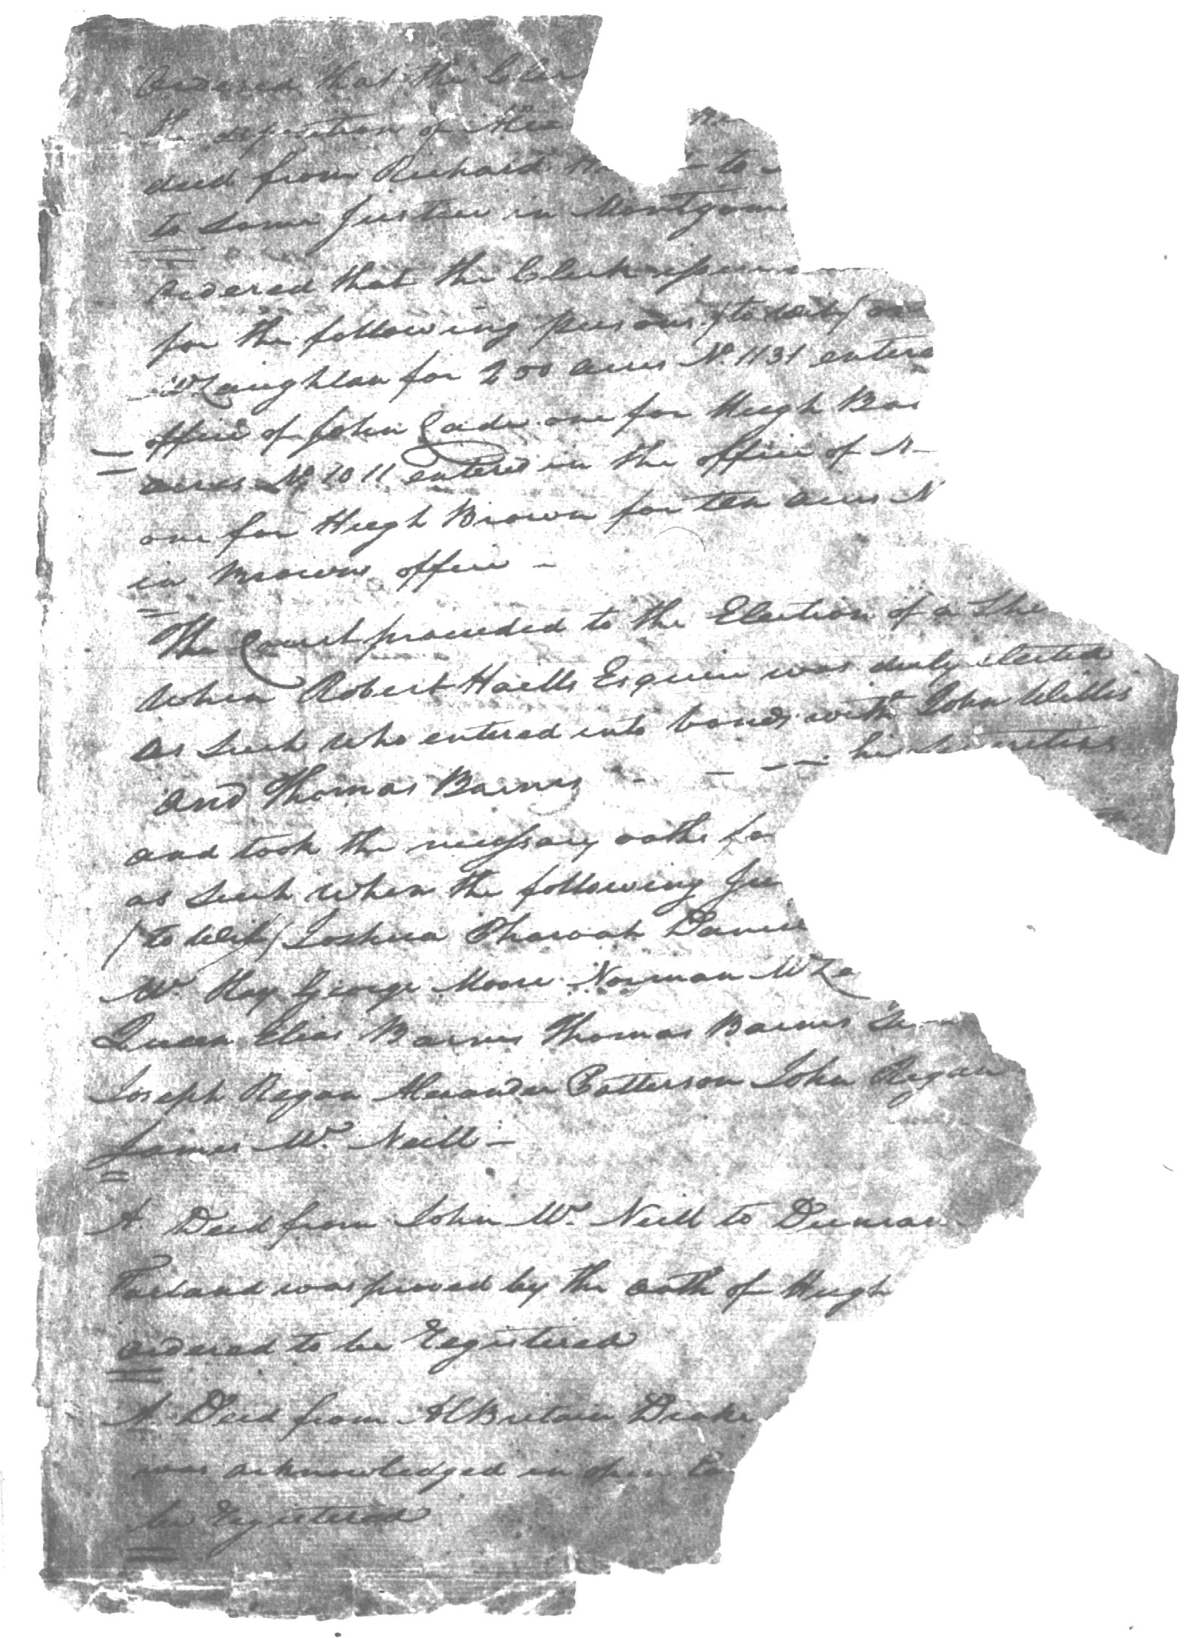 Ordered that the Cler
the deposition of Alex
deed from Richard to
to some Justice in Montgom
Ordered that the Clerk issue
for the following persons (to wit) one
McLaughlan for 200 acres No. 1131 entere
office of John Cade one for Hugh Bro
acres No 1011 entered in the office of
one for Hugh Brown for ten acres N
in Browns office –
The Court proceeded to the Election of a She
when Robert Hails Esquire was duly elected
as such who entered into bonds with John Willis
and Thomas Barnes - - -- his securities
and took the necessary oaths
as such when the following Ju
(to wit) Joshua Pharoah Danie
Mc Kay George Moore Norman McLe
Queen Elias Barnes Thomas Barnes
Joseph Regan Alexander Patterson John Regan
James Mc Neill –
A Deed from John Mc Neill to Duncan
Farland was proved by the oath of Hugh
ordered to be Registered
A Deed from Albritain Drake
was acknowledged in open Co
be Registered